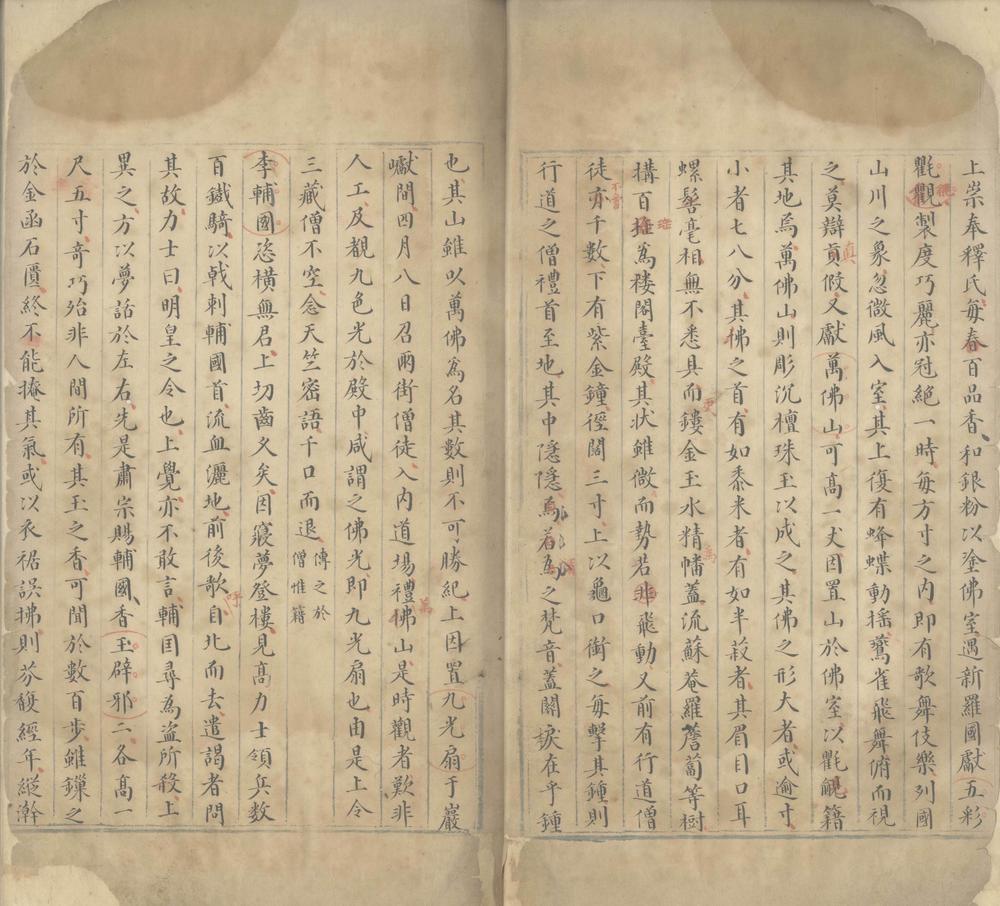 上崇奉釋氏每春百品香和銀粉以塗佛室遇新羅國獻五彩
氍觀製度巧麗亦冠絕一時每方寸之內即有歌舞伎樂列國
山川之象忽微風入室其上復有蜂蝶動搖鷰雀飛舞俯而視
之莫辯真假又獻萬佛山可高一丈因置山於佛室以氍毹籍
其地焉萬佛山則彫沉檀珠玉以成之其佛之形大者或逾寸
小者七八分其佛之首有如黍米者有如半菽者其眉目口耳
螺髻毫相無不悉具而鏤金玉水精幡蓋流蘇菴羅薝蔔等樹
構百寶為樓閣臺殿其狀雖微而勢若非飛動又前有行道僧
徒亦千數下有紫金鐘徑闊三寸上以龜口銜之每擊其鍾則
行道之僧禮首至地其中隱隱為若為之梵音蓋關捩在乎鍾
也其山雖以萬佛為名其數則不可勝紀上因置九光扇于巖
巘間四月八日召兩街僧徒入內道場禮佛山是時觀者歎非
人工及覩九色光於殿中咸謂之佛光即九光扇也由是上令
三藏僧不空念天竺密語千口而退傳之於僧惟籍
李輔國恣橫無君上切齒久矣因寢夢登樓見高力士領兵數
百鐵騎以戟刺輔國首流血灑地前後歌自北而去遣謁者問
其故力士曰明皇之令也上覺亦不敢言輔囯尋為盜所殺上
異之方以夢話於左右先是肅宗賜輔國香玉辟邪二各高一
尺五寸竒巧殆非人間所有其玉之香可聞於數百步雖鏁之
於金函石匱終不能掩其氣或以衣裾誤拂則芬馥經年縱澣